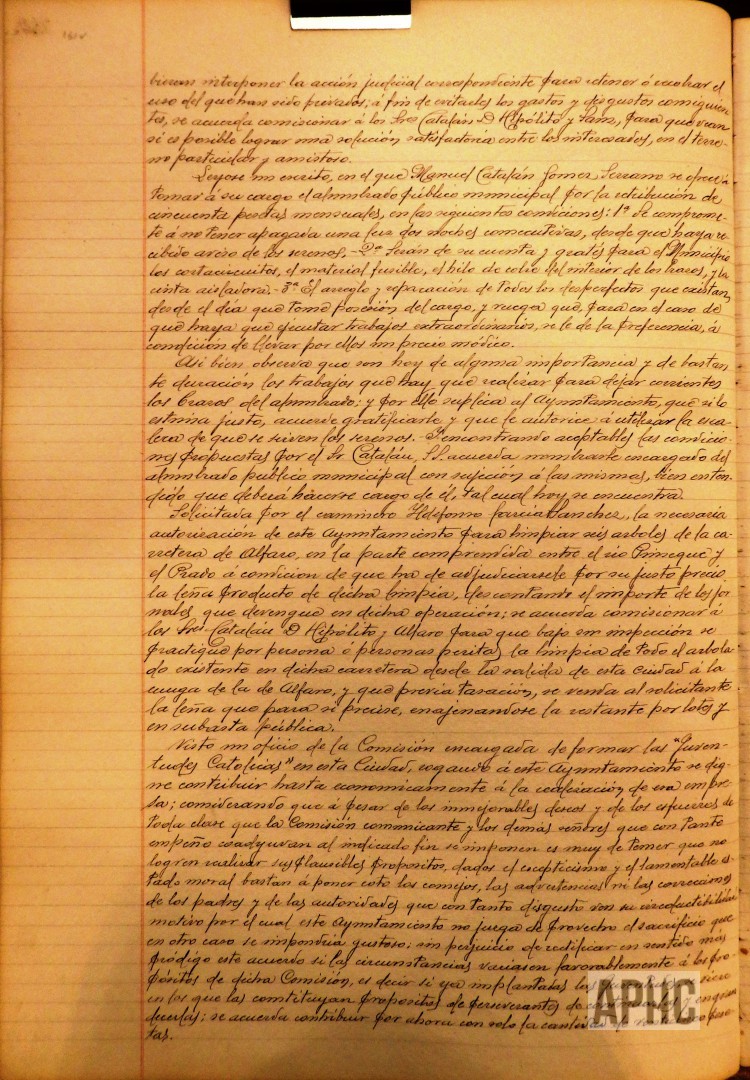 bieran interponer la acción judicial correspondiente para retener ó recobrar el
uso del que han sido privados; á fin de evitarles los gastos y disgustos consiguien
tes, se acuerda comisionar á los Sres Catalán D Hipólito y Sanz, para que vean
si es posible lograr una solución satisfactoria entre los interesados, en el terre-
no particular y amistoso.
Leyose un escrito, en el que Manuel Catalán Gomez Serrano se ofrece á
tomar á su cargo el alumbrado público municipal por la retribución de
cincuenta pesetas mensuales, en las siguientes condiciones: 1ª Se comprome-
te á no tener apagada una luz dos noches consecutivas, desde que haya re
cibido aviso de los serenos. - 2ª Serán de su cuenta y gratis para el Municipio
los cortacircuitos, el material fusible, el hilo de cobre del interior de los brazos, y la
cinta aisladora. - 3ª El arreglo y reparación de todos los desperfectos que existan,
desde el día que tome posesión del cargo, y ruega que, para en el caso de
que haya que ejecutar trabajos extraordinarios, se le dé la preferencia, á
condición de llevar por ellos un precio módico.
Asi bien, observa que son hoy de alguna importancia y de bastan
te duración los trabajos que hay que realizar para dejar corrientes
los brazos del alumbrado; y por ello suplica al Ayuntamiento, que si lo
estima justo, acuerde gratificarle y que le autorice á utilizar la esca
lera de que se sirven los serenos. Y encontrando aceptables las condicio-
nes propuestas por el Sr Catalán, S.S. acuerda nombrarle encargado del
alumbrado público municipal con sujeción á las mismas, bien enten-
dido que deberá hacerse cargo de él, tal cual hoy se encuentra.
Solicitada por el caminero Ildefonso García Sanchez, la necesaria
autorización de este Ayuntamiento para limpiar seis arboles de la ca-
rretera de Alfaro, en la parte comprendida entre el rio y
el Prado á condicion de que ha de adjudicarsele por su justo precio
la leña producto de dicha limpia, descontando el importe de los jor
nales que devengue en dicha operación; se acuerda comisionar á
los Sres Catalán D Hipólito y Alfaro para que bajo su inspección se
practique por persona ó personas peritas la limpia de todo el arbola
do existente en dicha carretera desde la salida de esta Ciudad á la
de la de Alfaro, y que previa tasación, se venda al solicitante
la leña que para si precise, enajenandose la restante por lotes y
en subasta pública.
Visto un oficio de la Comisión encargada de formar las "Juven-
tudes Catolicas" en esta Ciudad, rogando á este Ayuntamiento se dig-
ne contribuir hasta economicamente á la realización de esa empre
sa; considerando que á pesar de los inmejorables deseos y de los esfuerzos de
toda clase que la Comisión comunicante y los demás señores que con tanto
empeño coadyuvan al indicado fin se imponen es muy de temer que no
logren realizar sus plausibles propositos, dados el escepticismo y el lamentable es-
tado moral bastan á poner coto los consejos, las advertencias ni las correcciones
de los padres y de las autoridades que con tanto disgusto ven su irreductibilidad
motivo por el cual este Ayuntamiento no juzga de provecho el sacrificio que
en otro caso se impondria gustoso; sin perjuicio de rectificar en sentido más
pródigo este acuerdo si las circunstancias variasen favorablemente á los pro-
pósitos de dicha Comisión, es decir si ya implantadas las
en los que las constituyan propositos de perseverantes de y engran
decerlas; se acuerda contribuir por ahora con solo la cantidad de pese
tas.
APHC